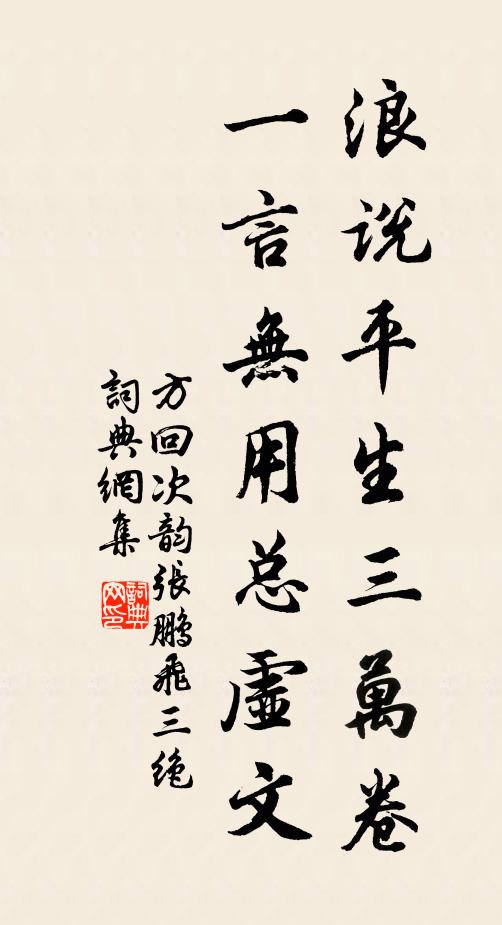 浪説平生三萬卷
一言無用总虛文
方回次韵張鵬飛三绝
詞典網集
詞典
网印